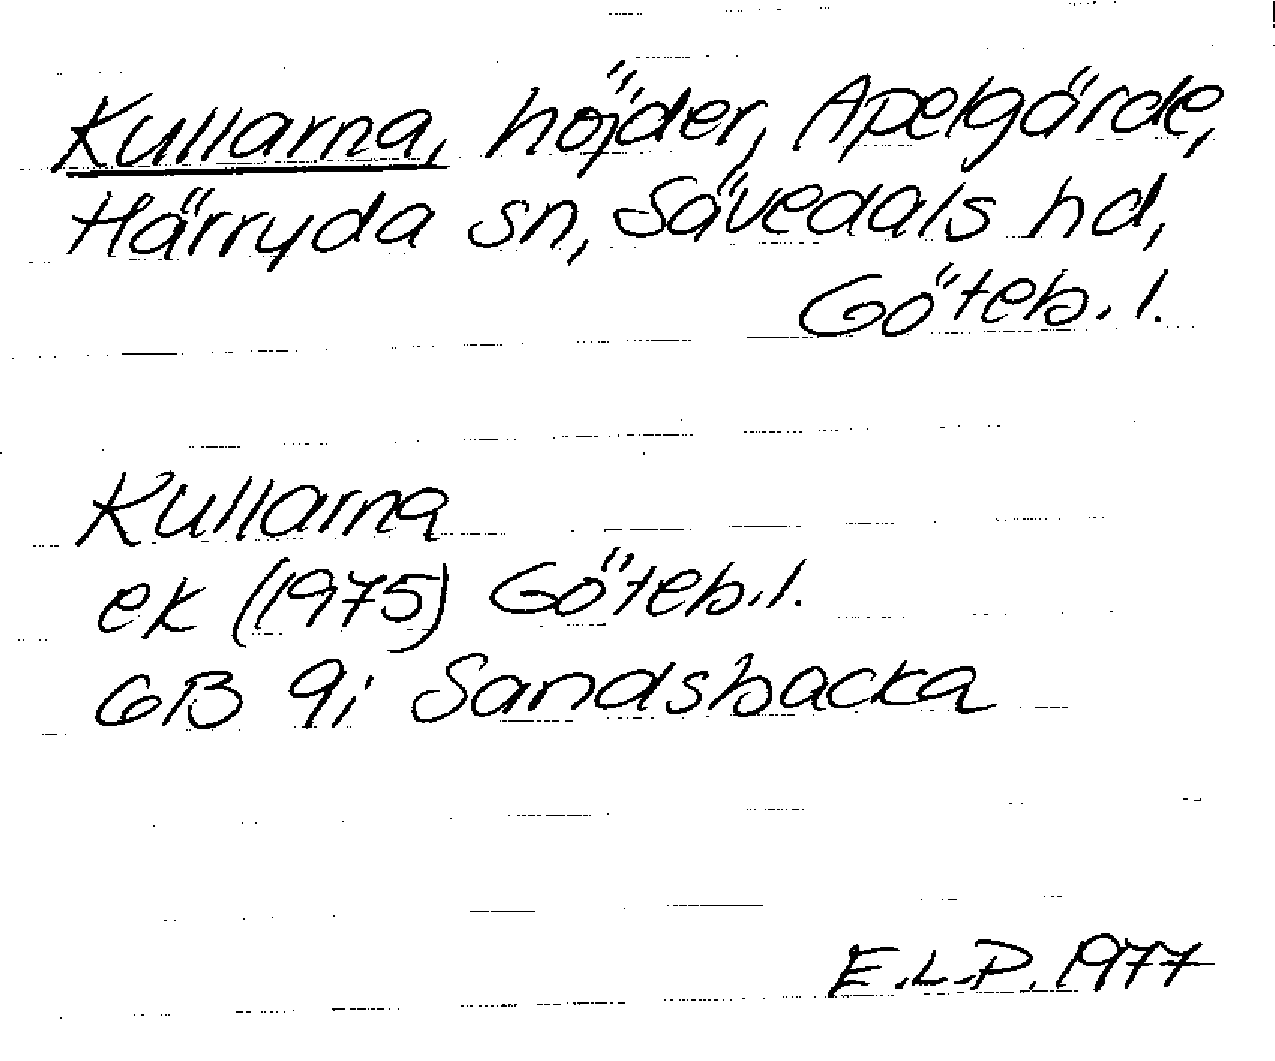 Kullarna, höjder, Apelgärde,
Härryda sn, Sävedals hd,
Göteb. l.
Kullarna
ek (1975) Göteb. l.
GB 9i Sandsbacka
E.L.P. 1977